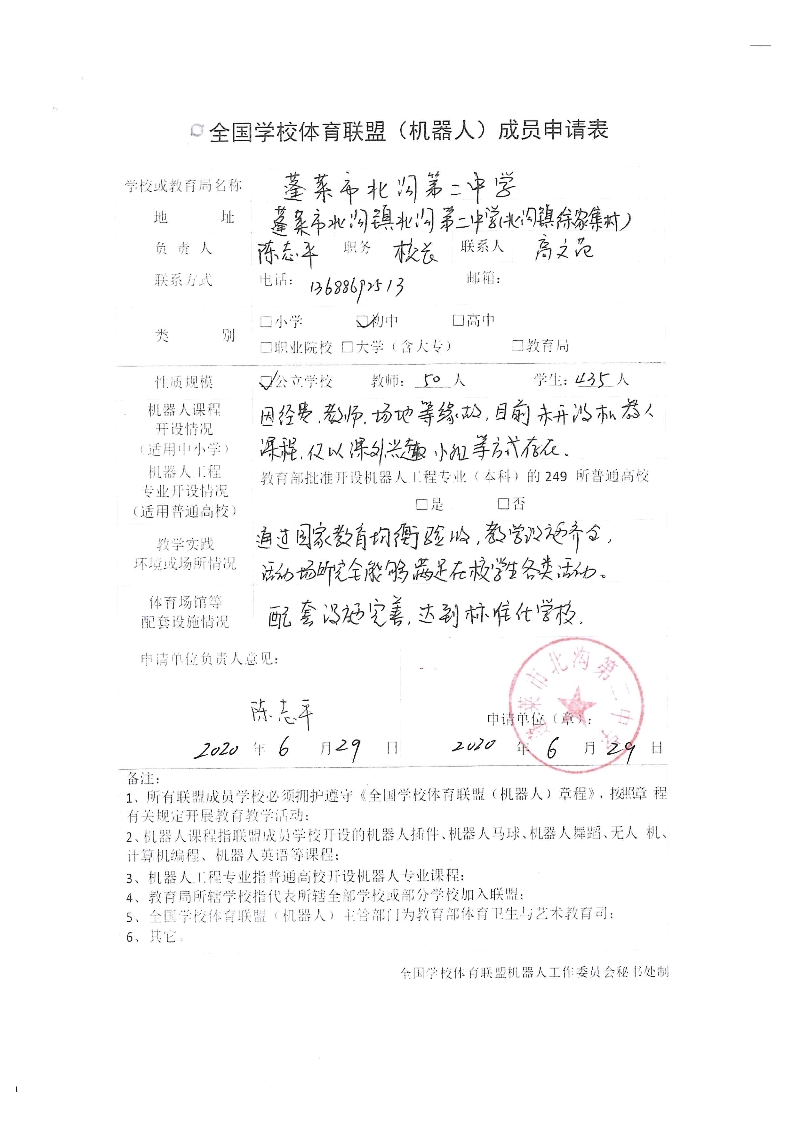 全国学校体育联盟（机器人）成员申请表
学校或教育局名称 蓬莱市北沟第二中学
地 址 蓬莱市北沟镇北沟第二中学(北沟镇徐家集村)
负责人 陈志平 职务 校长 联系人 高文
联系方式 电话: 13688692513 邮箱:
□小学 ☑初中 □高中
类 别
□职业院校 □大学（含大专） □教育局
性质规模 ☑公立学校 教师: 50 人 学生: 435 人
机器人课程 因经费.教师.场地等缘故,目前未开设机器人
开设情况
（适用中小学） 课程,仅以课外兴趣小组等方式存在.
机器人工程 教育部批准开设机器人工程专业（本科）的 249 所普通高校
专业开设情况
（适用普通高校） □是 □否
教学实践 通过国家教育均衡验收,教学设施齐全,
环境或场所情况 活动场所完全能够满足在校学生各类活动。
体育场馆等
配套设施情况 配套设施完善,达到标准化学校.
申请单位负责人意见:
蓬莱市北沟第二中学
陈志平 申请单位（章）:
2020 年 6 月 29 日 2020 年 6 月 29 日
备注:
1、所有联盟成员学校必须拥护遵守《全国学校体育联盟（机器人）章程》，按照章 程
有关规定开展教育教学活动;
2、机器人课程指联盟成员学校开设的机器人插件、机器人马球、机器人舞蹈、无人 机、
计算机编程、机器人英语等课程;
3、机器人工程专业指普通高校开设机器人专业课程;
4、教育局所辖学校指代表所辖全部学校或部分学校加入联盟;
5、全国学校体育联盟（机器人）主管部门为教育部体育卫生与艺术教育司;
6、其它。
全国学校体育联盟机器人工作委员会秘书处制